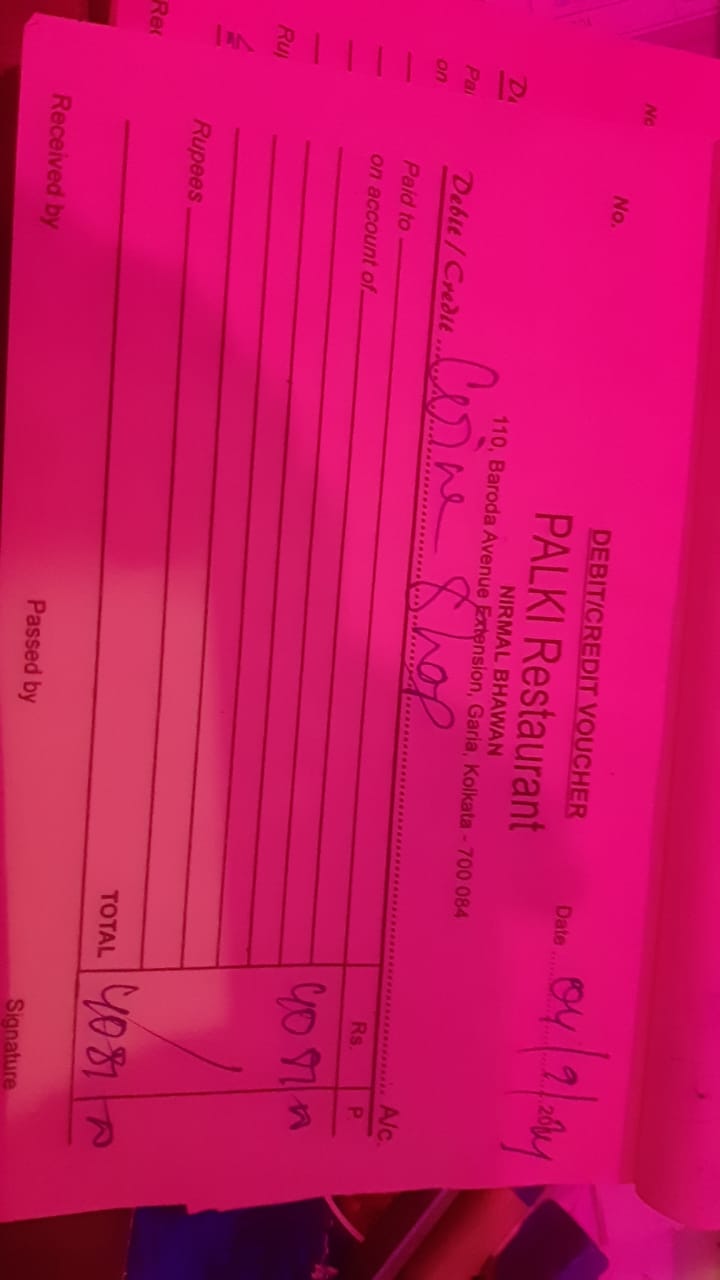 No.
DEBIT/CREDIT VOUCHER
PALKI Restaurant
NIRMAL BHAWAN
110, Baroda Avenue Extension, Garia, Kolkata - 700 084
Date 04/9/2024
Debit / Credit Wine Shop A/c.
Paid to
Rs. P.
on account of
Rupees
TOTAL
Received by Passed by Signature